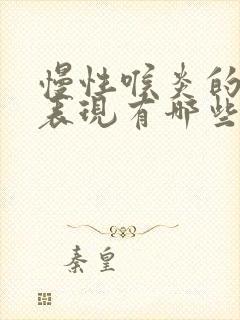 慢性喉炎的
表现有哪些
秦皇